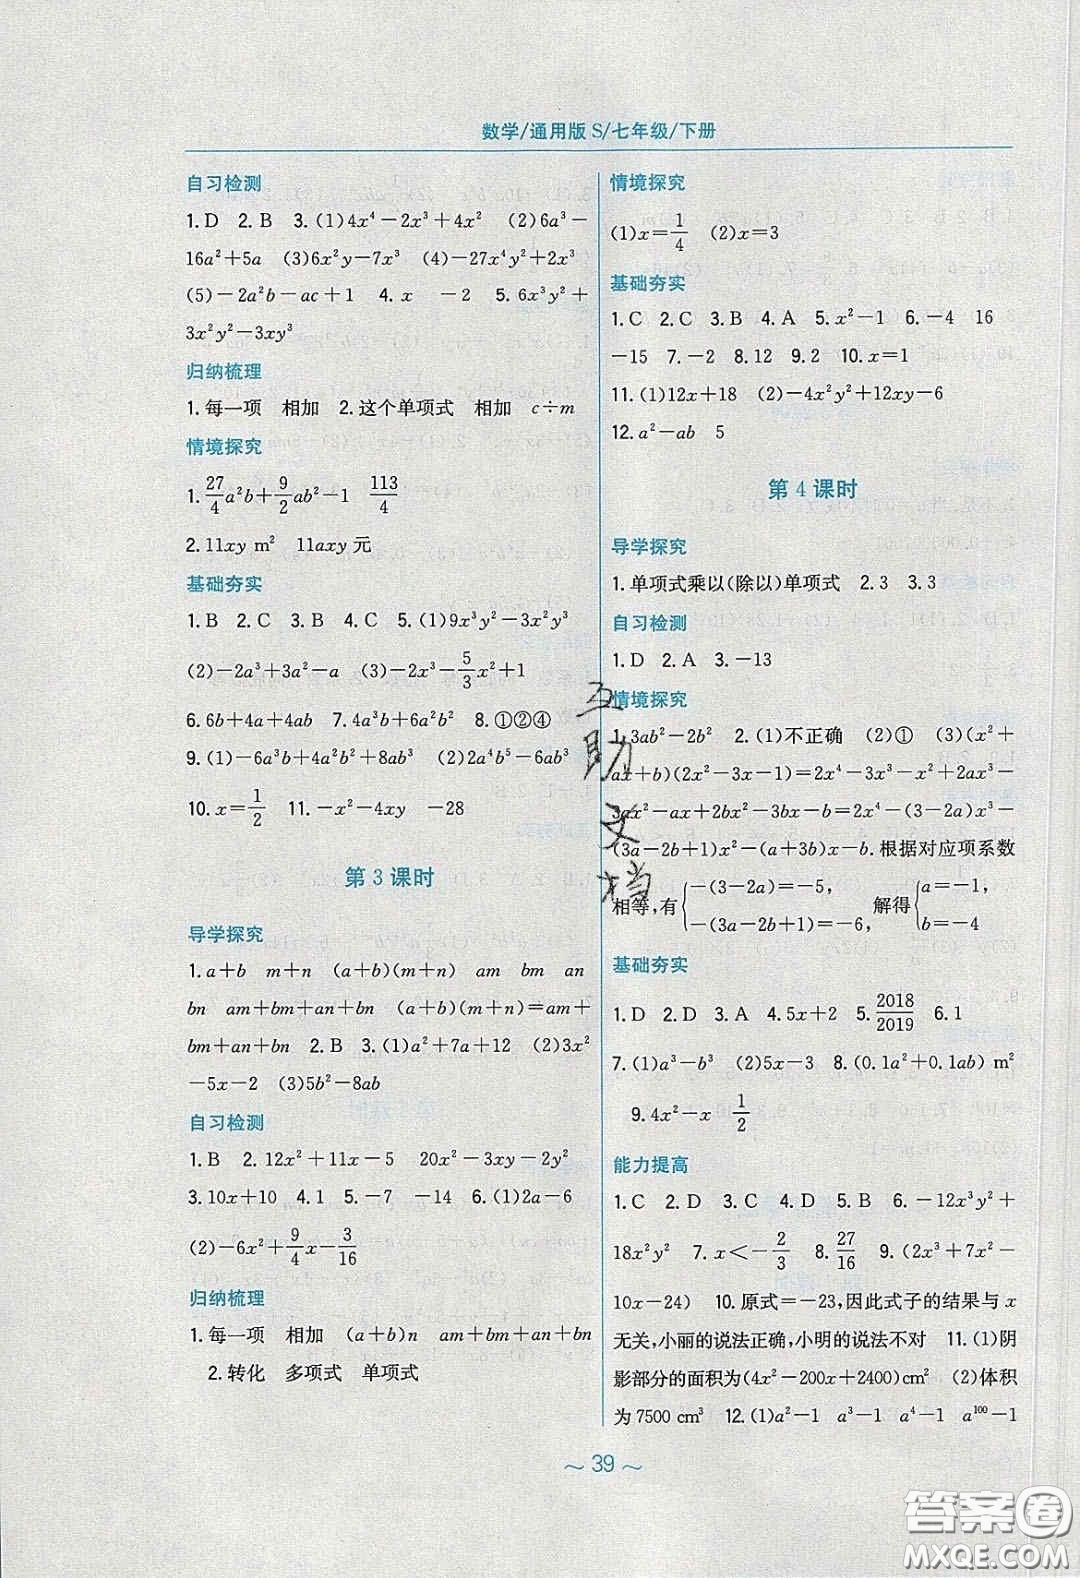 数学/通用版 S/七年级/下册
自习检测
1. D 2. B 3. (1)4x⁴－2x³＋4x² (2)6a³－
16a²＋5a (3)6x²y－7x³ (4)－27x⁴y²＋2x³
(5)－2a²b－ac＋1 4. x －2 5. 6x³y²＋
3x²y²－3xy³
归纳梳理
1. 每一项 相加 2. 这个单项式 相加 c÷m
情境探究
1. 27/4a²b＋9/2ab²－1 113/4
2. 11xy m² 11axy 元
基础夯实
1. B 2. C 3. B 4. C 5. (1)9x³y²－3x²y³
(2)－2a³＋3a²－a (3)－2x³－5/3x²＋1
6. 6b＋4a＋4ab 7. 4a³b＋6a² 8. ①②④
9. (1)－6a³b＋4a²b²＋8ab³ (2)2a⁴b⁵－6ab³
10. x＝1/2 11. －x²－4xy －28
第 3 课时
导学探究
1. a＋b m＋n (a＋b)(m＋n) am bm an
bn am＋bm＋an＋bn (a＋b)(m＋n)＝am＋
bm＋an＋bn 2. B 3. (1)a²＋7a＋12 (2)3x²
－5x－2 (3)5b²－8ab
自习检测
1. B 2. 12x²＋11x－5 20x²－3xy－2y²
3. 10x＋10 4. 1 5. －7 －14 6. (1)2a－6
(2)－6x²＋9/4x－3/16
归纳梳理
1. 每一项 相加 (a＋b)n am＋bm＋an＋bn
2. 转化 多项式 单项式
情境探究
(1)x＝1/4 (2)x＝3
基础夯实
1. C 2. C 3. B 4. A 5. x²－1 6. －4 16
－15 7. －2 8. 12 9. 2 10. x＝1
11. (1)12x＋18 (2)－4x²y²＋12xy－6
12. a²－ab 5
第 4 课时
导学探究
1. 单项式乘以(除以)单项式 2. 3 3. 3
自习检测
1. D 2. A 3. －13
情境探究
1. 3ab²－2b² 2. (1)不正确 (2)① (3)(x²＋
ax＋b)(2x²－3x－1)＝2x⁴－3x³－x²＋2ax³－
3ax²－ax＋2bx²－3bx－b＝2x⁴－(3－2a)x³－
(3a－2b＋1)x²－(a＋3b)x－b. 根据对应项系数
相等,有{－(3－2a)＝－5, －(3a－2b＋1)＝－6, 解得{a＝－1, b＝－4
基础夯实
1. D 2. D 3. A 4. 5x＋2 5. 2018/2019 6. 1
7. (1)a³－b³ (2)5x－3 8. (0.1a²＋0.1ab) m²
9. 4x²－x 1/2
能力提高
1. C 2. D 3. C 4. D 5. B 6. －12x³y²＋
18x²y² 7. x＜－2/3 8. 27/16 9. (2x³＋7x²－
10x－24) 10. 原式＝－23,因此式子的结果与 x
无关,小丽的说法正确,小明的说法不对 11. (1)阴
影部分的面积为(4x²－200x＋2400)cm² (2)体积
为 7500 cm³ 12. (1)a²－1 a³－1 a⁴－1 a¹⁰⁰－1
互助文档
～ 39 ～
答案圈
MXQE.COM